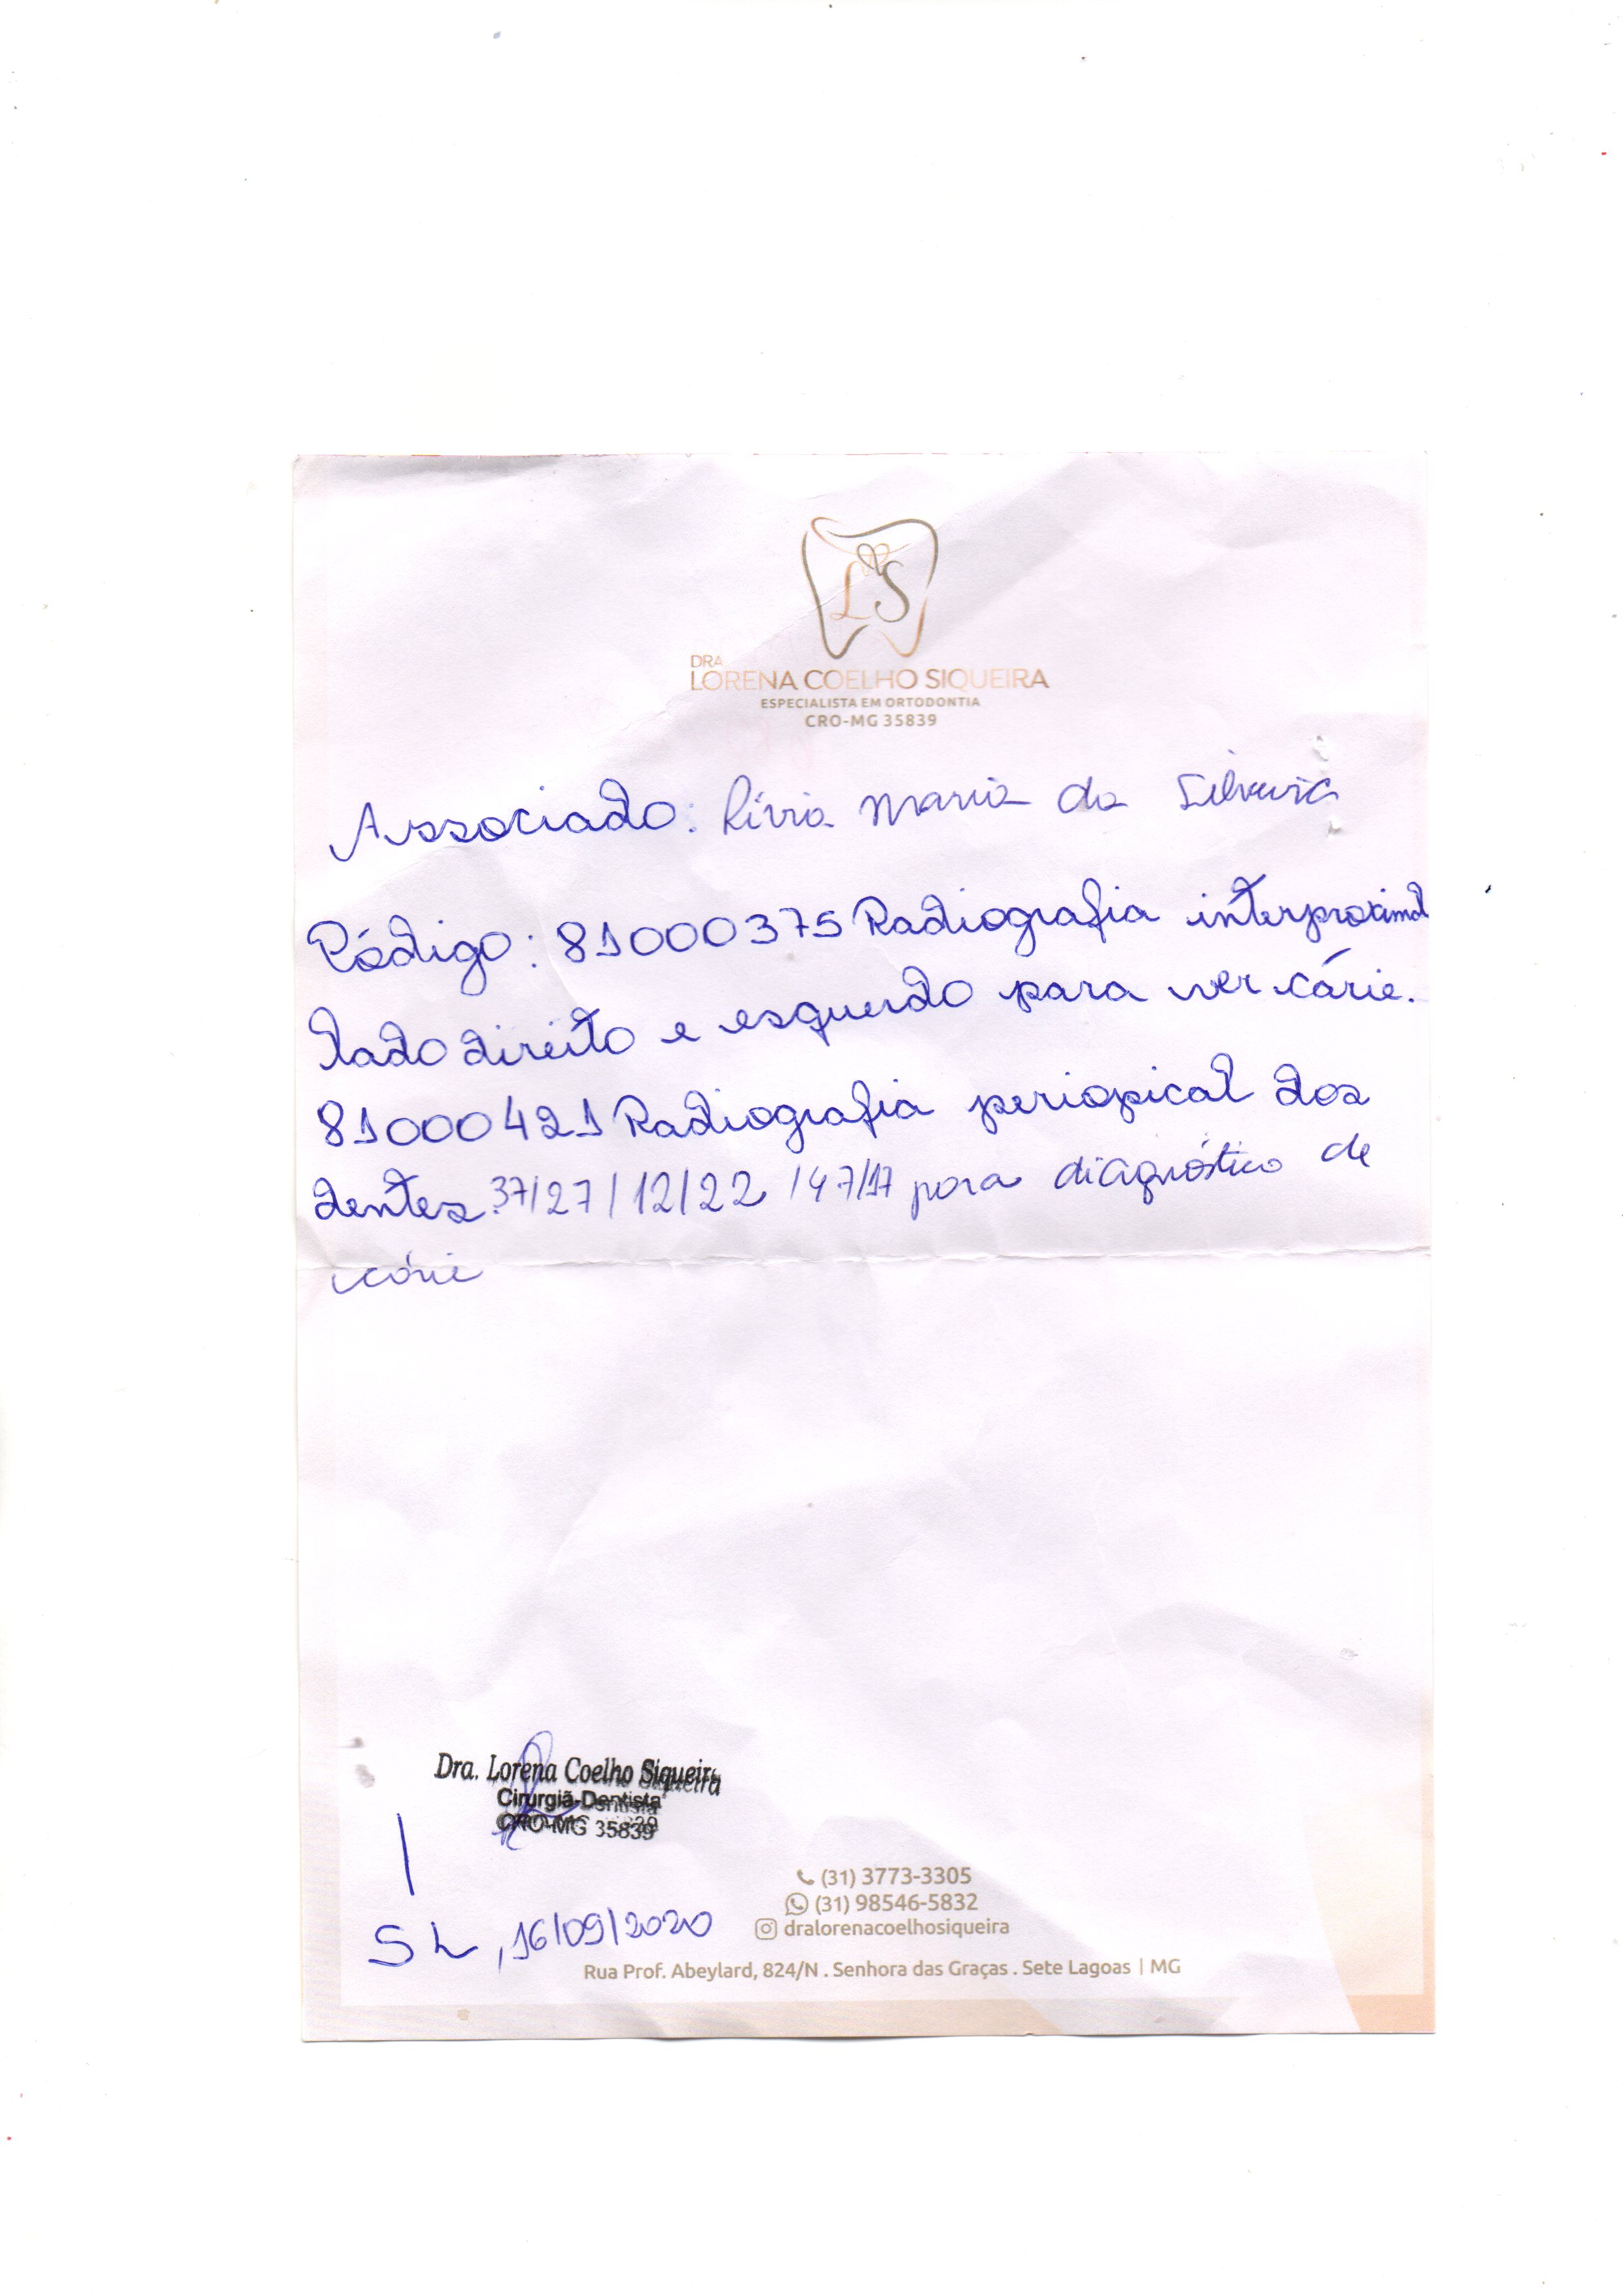 LS
DRA
LORENA COELHO SIQUEIRA
ESPECIALISTA EM ORTODONTIA
CRO-MG 35839
Associado: Lívia Maria da Silveira
Código: 81000375 Radiografia interproximal
lado direito e esquerdo para ver cárie.
81000421 Radiografia periapical dos
dentes 37/27/12/22/47/17 para diagnóstico de
cárie
Dra. Lorena Coelho Siqueira
Cirurgiã-Dentista
CRO-MG 35839
SL, 16/09/2020
(31) 3773-3305
(31) 98546-5832
dralorenacoelhosiqueira
Rua Prof. Abeylard, 824/N . Senhora das Graças . Sete Lagoas | MG